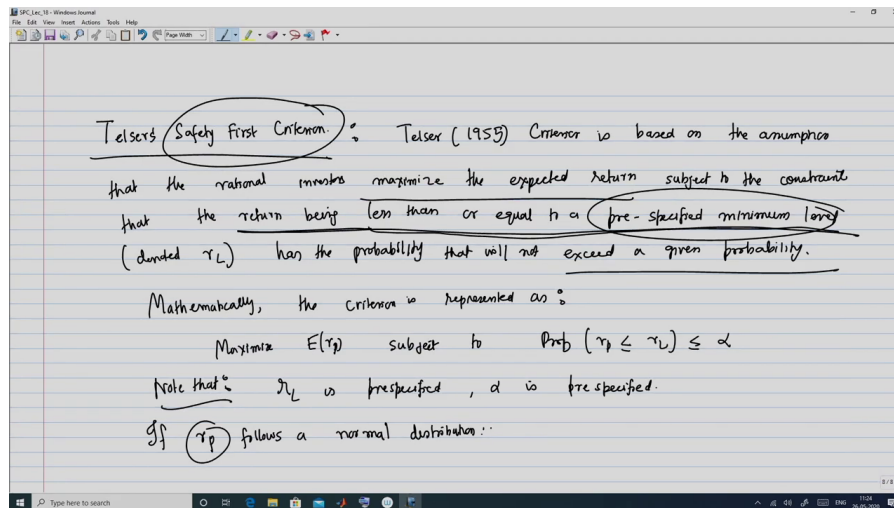 SPC_Lec_18 - Windows Journal
File Edit View Insert Actions Tools Help
Page Width
Telser's Safety First Criterion : Telser (1955) Criterion is based on the assumption
that the rational investors maximize the expected return subject to the constraint
that the return being less than or equal to a pre-specified minimum level
(denoted r_L) has the probability that will not exceed a given probability.
Mathematically, the criterion is represented as :
Maximize E(r_p) subject to Prob (r_p ≤ r_L) ≤ α
Note that : r_L is prespecified, α is prespecified.
If r_p follows a normal distribution :
8/8
Type here to search
ENG
11:24
26-05-2020